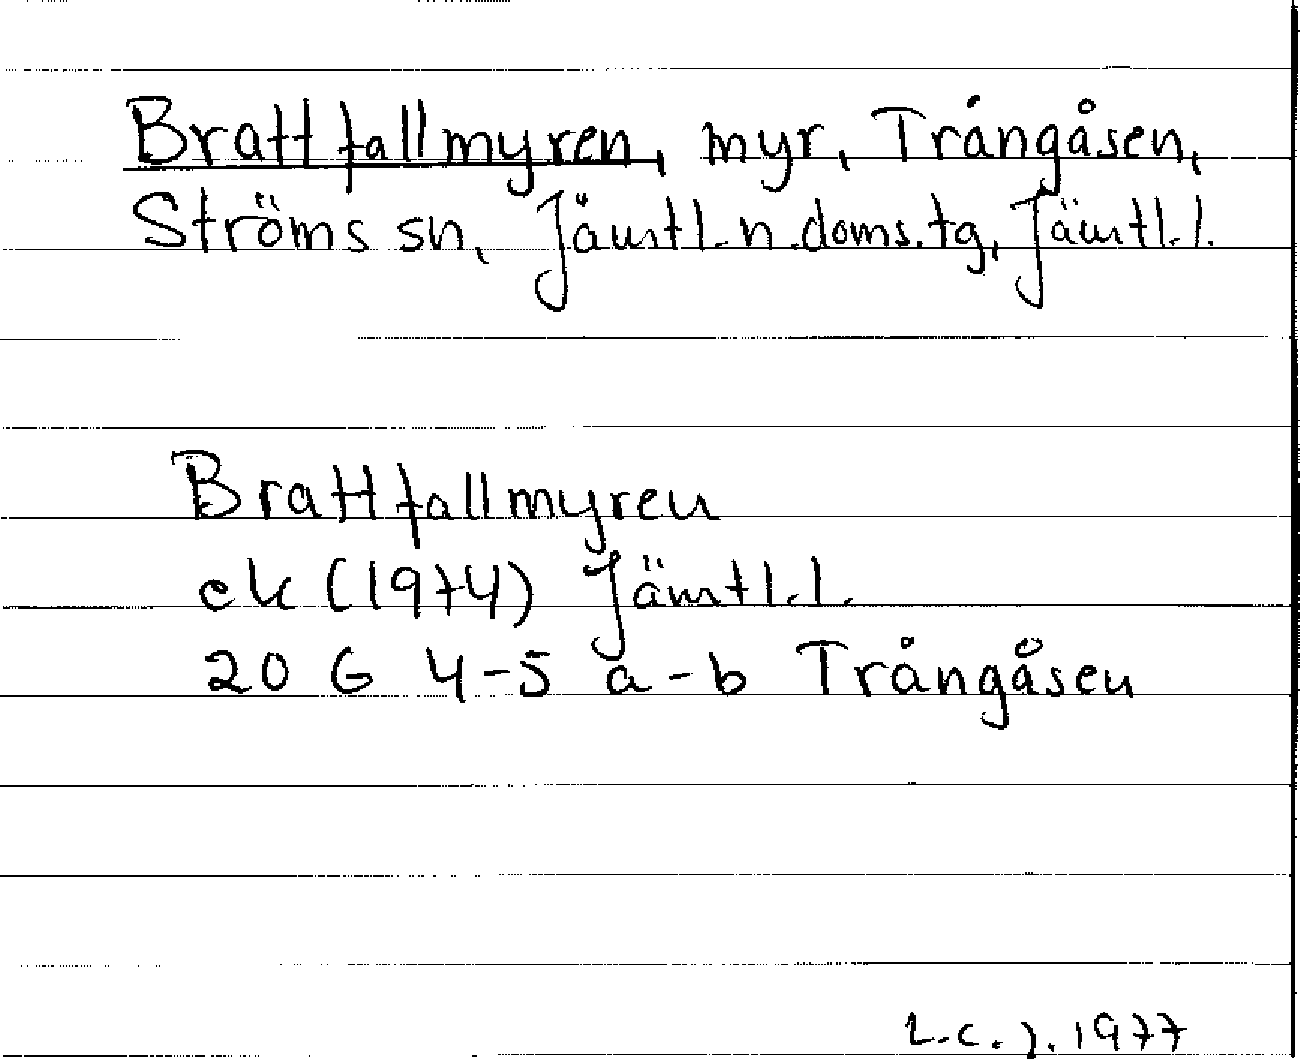 Brattfallmyren, myr, Trångåsen,
Ströms sn, Jämtl. n. doms. tg, Jämtl. l.
Brattfallmyren
ek (1974) Jämtl. l.
20 G 4-5 a-b Trångåsen
L.C.J. 1977